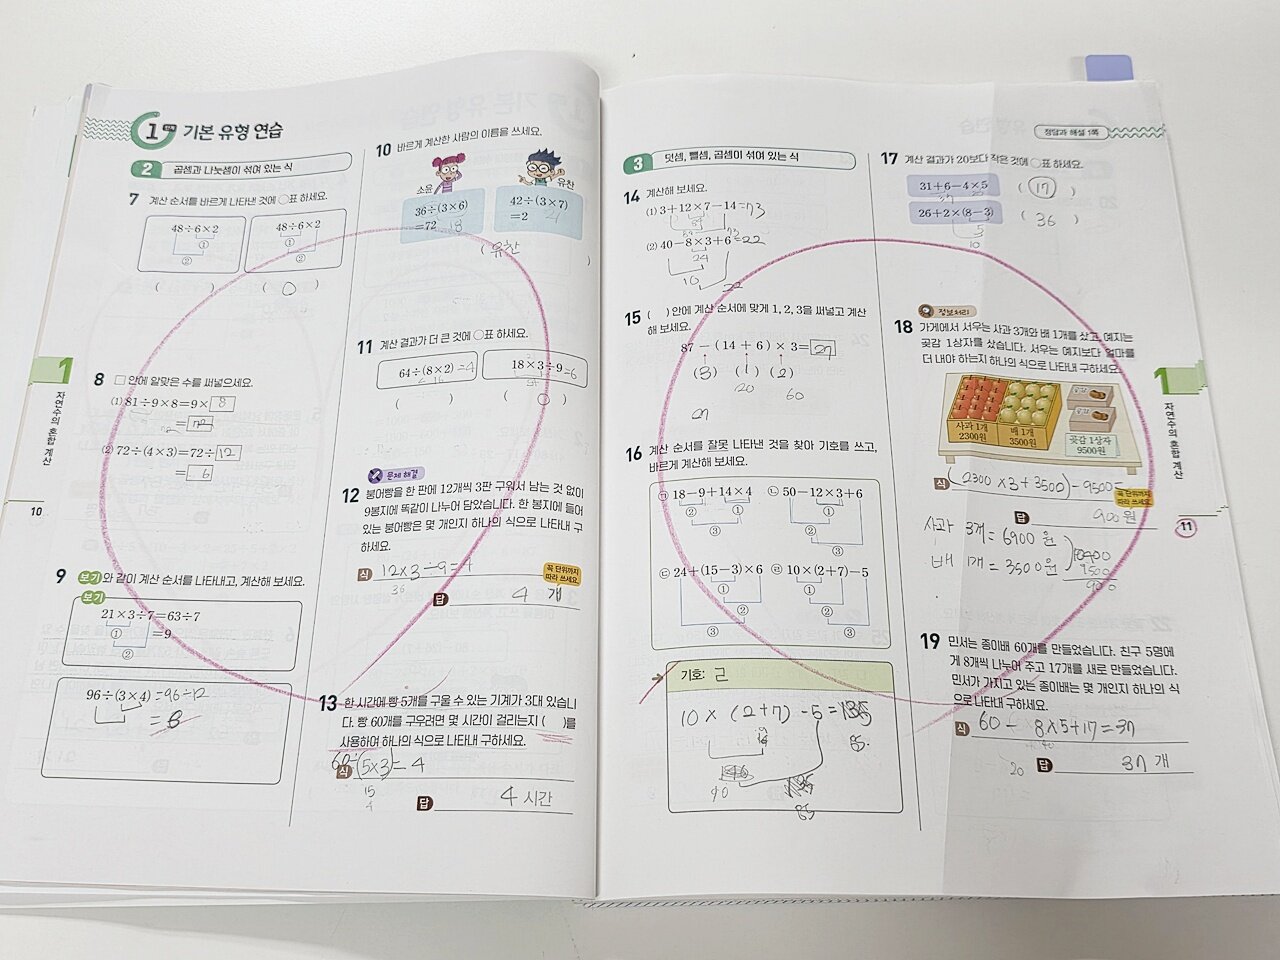 1 기본 유형 연습
2 곱셈과 나눗셈이 섞여 있는 식
7 계산 순서를 바르게 나타낸 것에 ○표 하세요.
48÷6×2
①
②
48÷6×2
①
②
( ) ( ○ )
8 □ 안에 알맞은 수를 써넣으세요.
(1) 81÷9×8=9×8
=72
(2) 72÷(4×3)=72÷12
=6
9 보기와 같이 계산 순서를 나타내고, 계산해 보세요.
보기
21×3÷7=63÷7
① =9
②
96÷(3×4)=96÷12
=8
10 바르게 계산한 사람의 이름을 쓰세요.
소윤
유찬
36÷(3×6)
=72 18
42÷(3×7)
=2 21
( 유찬 )
11 계산 결과가 더 큰 것에 ○표 하세요.
64÷(8×2)=4
16
18×3÷9=6
54
( ) ( ○ )
문제 해결
12 붕어빵을 한 판에 12개씩 3판 구워서 남는 것 없이
9봉지에 똑같이 나누어 담았습니다. 한 봉지에 들어
있는 붕어빵은 몇 개인지 하나의 식으로 나타내 구
하세요.
식 12×3÷9=4
36
꼭 단위까지
따라 쓰세요.
답 4 개
13 한 시간에 빵 5개를 구울 수 있는 기계가 3대 있습니
다. 빵 60개를 구우려면 몇 시간이 걸리는지 ( )를
사용하여 하나의 식으로 나타내 구하세요.
식 60÷(5×3)=4
15
4
답 4 시간
1
자연수의 혼합 계산
10
정답과 해설 1쪽
3 덧셈, 뺄셈, 곱셈이 섞여 있는 식
14 계산해 보세요.
(1) 3+12×7-14=73
84
(2) 40-8×3+6=22
24
16
22
15 ( ) 안에 계산 순서에 맞게 1, 2, 3을 써넣고 계산
해 보세요.
87 - (14 + 6) × 3=27
(3) (1) (2)
20 60
27
16 계산 순서를 잘못 나타낸 것을 찾아 기호를 쓰고,
바르게 계산해 보세요.
㉠ 18-9+14×4
②
①
③
㉡ 50-12×3+6
①
②
③
㉢ 24+(15-3)×6
①
②
③
㉣ 10×(2+7)-5
①
②
③
기호: ㄹ
10 × (2+7) -5 =
85
90
85
17 계산 결과가 20보다 작은 것에 ○표 하세요.
31+6-4×5 ( 17 )
37 20
26+2×(8-3) ( 36 )
5
10
정보처리
18 가게에서 서우는 사과 3개와 배 1개를 샀고, 예지는
곶감 1상자를 샀습니다. 서우는 예지보다 얼마를
더 내야 하는지 하나의 식으로 나타내 구하세요.
사과 1개
2300원
배 1개
3500원
곶감 1상자
9500원
식 (2300×3+3500)-9500=
꼭 단위까지
따라 쓰세요.
답 900 원
사과 3개=6900원
배 1개=3500원
10400
9500
900
19 민서는 종이배 60개를 만들었습니다. 친구 5명에
게 8개씩 나누어 주고 17개를 새로 만들었습니다.
민서가 가지고 있는 종이배는 몇 개인지 하나의 식
으로 나타내 구하세요.
식 60-8×5+17=37
40
20
답 37 개
1
자연수의 혼합 계산
11